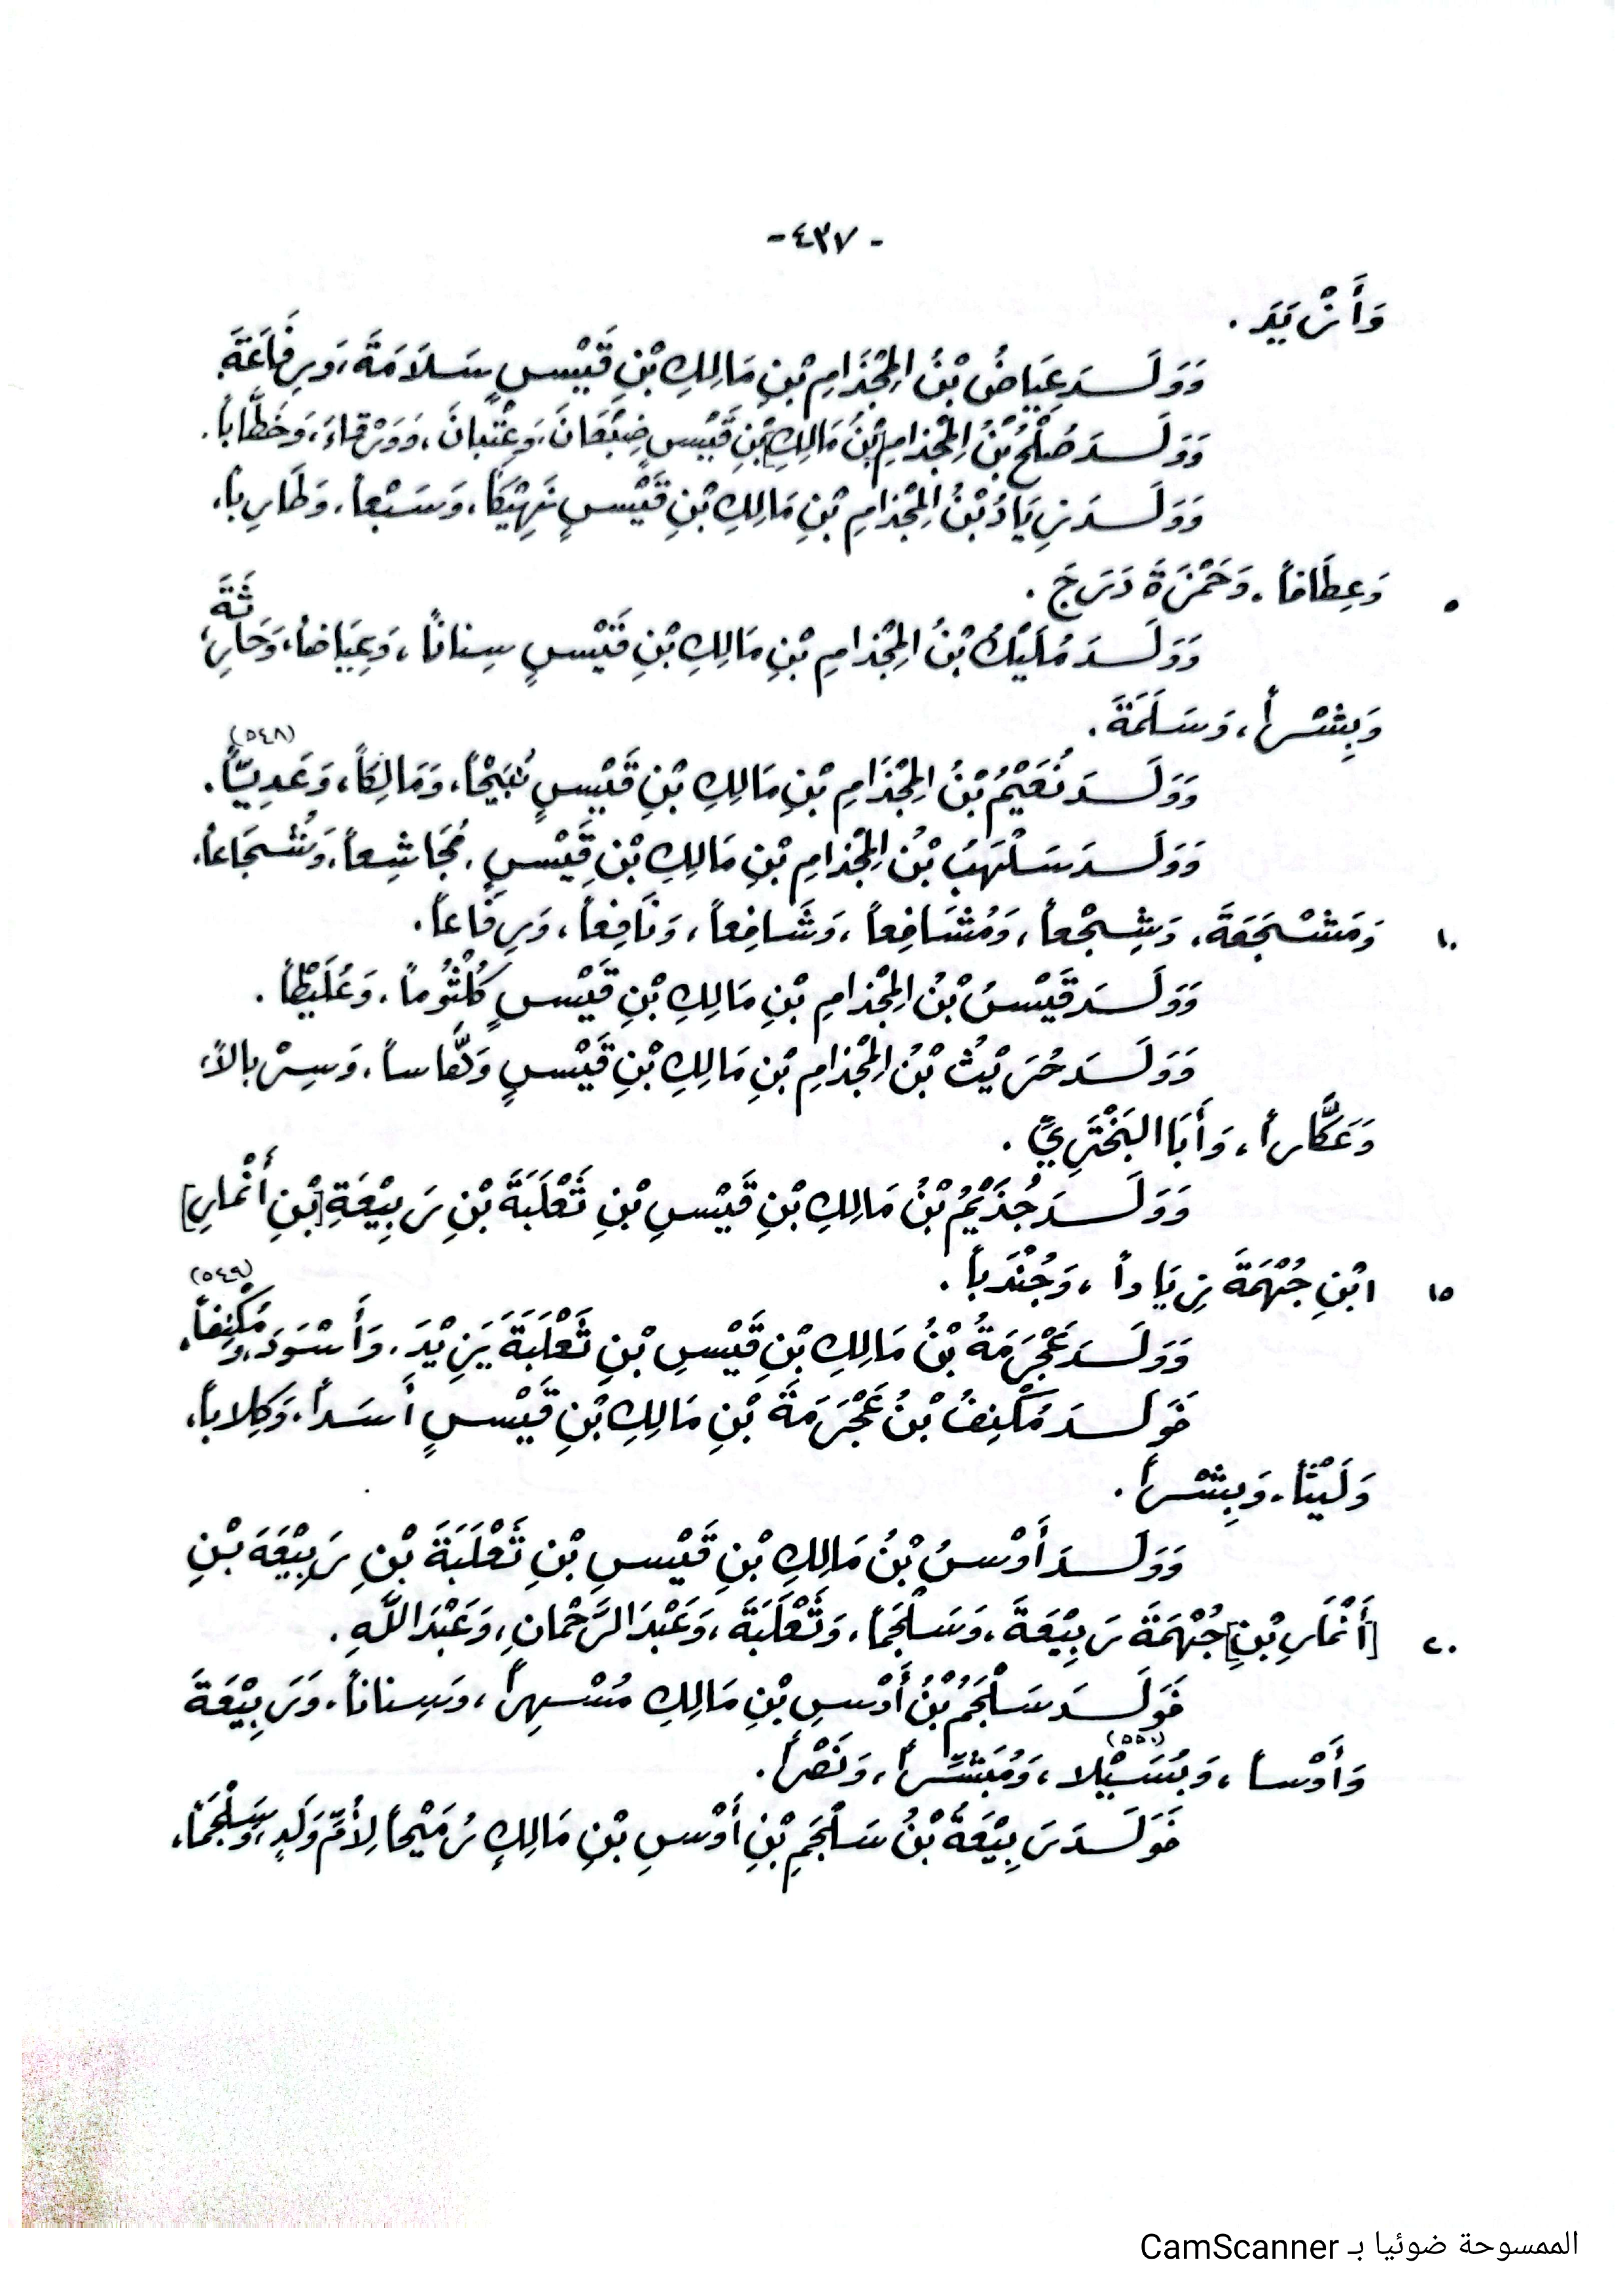 - ٤٣٧ -
وَأَزْيَدَ .
وَوَلَـدَ عِيَاضُ بْنُ الْمِجْذَامِ بْنِ مَالِكِ بْنِ قَيْسٍ سَلَامَةَ، وَرِفَاعَةَ.
وَوَلَـدَ صُلْحُ بْنُ الْمِجْذَامِ بْنِ مَالِكِ بْنِ قَيْسٍ ضِبْعَانَ، وَعِتْبَانَ، وَوَرْقَاءَ، وَخَطَّاباً.
وَوَلَـدَ زِيَادُ بْنُ الْمِجْذَامِ بْنِ مَالِكِ بْنِ قَيْسٍ نَهِيْكاً، وَسَبْعاً، وَطَارِباً،
٥ وَعِطَافاً، وَحَمْزَةَ دَرَجَ .
وَوَلَـدَ مُلَيْكُ بْنُ الْمِجْذَامِ بْنِ مَالِكِ بْنِ قَيْسٍ سِنَاناً، وَعِيَاضاً، وَحَارِثَةَ،
وَبِشْراً، وَسَلَمَةَ.
وَوَلَـدَ نُعَيْمُ بْنُ الْمِجْذَامِ بْنِ مَالِكِ بْنِ قَيْسٍ نُبَيْحاً، وَمَالِكاً، وَعَدِيّاً (٥٤٨) .
وَوَلَـدَ سَلْهَبُ بْنُ الْمِجْذَامِ بْنِ مَالِكِ بْنِ قَيْسٍ، مُجَاشِعاً، وَشُجَاعاً،
١٠ وَمَشْجَعَةَ، وَشِجْعاً، وَمُشَافِعاً، وَشَافِعاً، وَنَافِعاً، وَرِفَاعاً.
وَوَلَـدَ قَيْسُ بْنُ الْمِجْذَامِ بْنِ مَالِكِ بْنِ قَيْسٍ كُلْثُوماً، وَعُلَيْطاً .
وَوَلَـدَ حُرَيْثُ بْنُ الْمِجْذَامِ بْنِ مَالِكِ بْنِ قَيْسٍ وَهَّاساً، وَسِرْبَالاً،
وَعَكَّاراً، وَأَبَا البَخْتَرِيِّ .
وَوَلَـدَ جُذَيْمُ بْنُ مَالِكِ بْنِ قَيْسِ بْنِ ثَعْلَبَةَ بْنِ رَبِيْعَةَ [بْنِ أَنْمَارِ]
١٥ ابْنِ جُهْمَةَ زِيَاداً، وَجُنْدَباً .
وَوَلَـدَ عَجْرَمَةُ بْنُ مَالِكِ بْنِ قَيْسِ بْنِ ثَعْلَبَةَ يَزِيْدَ، وَأَسْوَدَ، وَمُكْنِفاً (٥٤٩).
فَوَلَـدَ مُكْنِفُ بْنُ عَجْرَمَةَ بْنِ مَالِكِ بْنِ قَيْسٍ أَسَداً، وَكِلاباً،
وَلَيْثاً، وَبِشْراً .
وَوَلَـدَ أَوْسُ بْنُ مَالِكِ بْنِ قَيْسِ بْنِ ثَعْلَبَةَ بْنِ رَبِيْعَةَ بْنِ
٢٠ [أَنْمَارِ بْنِ] جُهْمَةَ رَبِيْعَةَ، وَسَلْجَماً، وَثَعْلَبَةَ، وَعَبْدَ الرَّحْمَانِ، وَعَبْدَ اللَّهِ .
فَوَلَـدَ سَلْجَمُ بْنُ أَوْسِ بْنِ مَالِكِ مُسْهِراً، وَسِنَاناً، وَرَبِيْعَةَ
وَأَوْساً، وَبُسَيْلا (٥٥٠)، وَمُبَشِّراً، وَنَصْراً .
فَوَلَـدَ رَبِيْعَةُ بْنُ سَلْجَمِ بْنِ أَوْسِ بْنِ مَالِكٍ رُمَيْحاً لِأُمِّ وَلَدٍ، وَسَلْجَماً،
الممسوحة ضوئيا بـ CamScanner